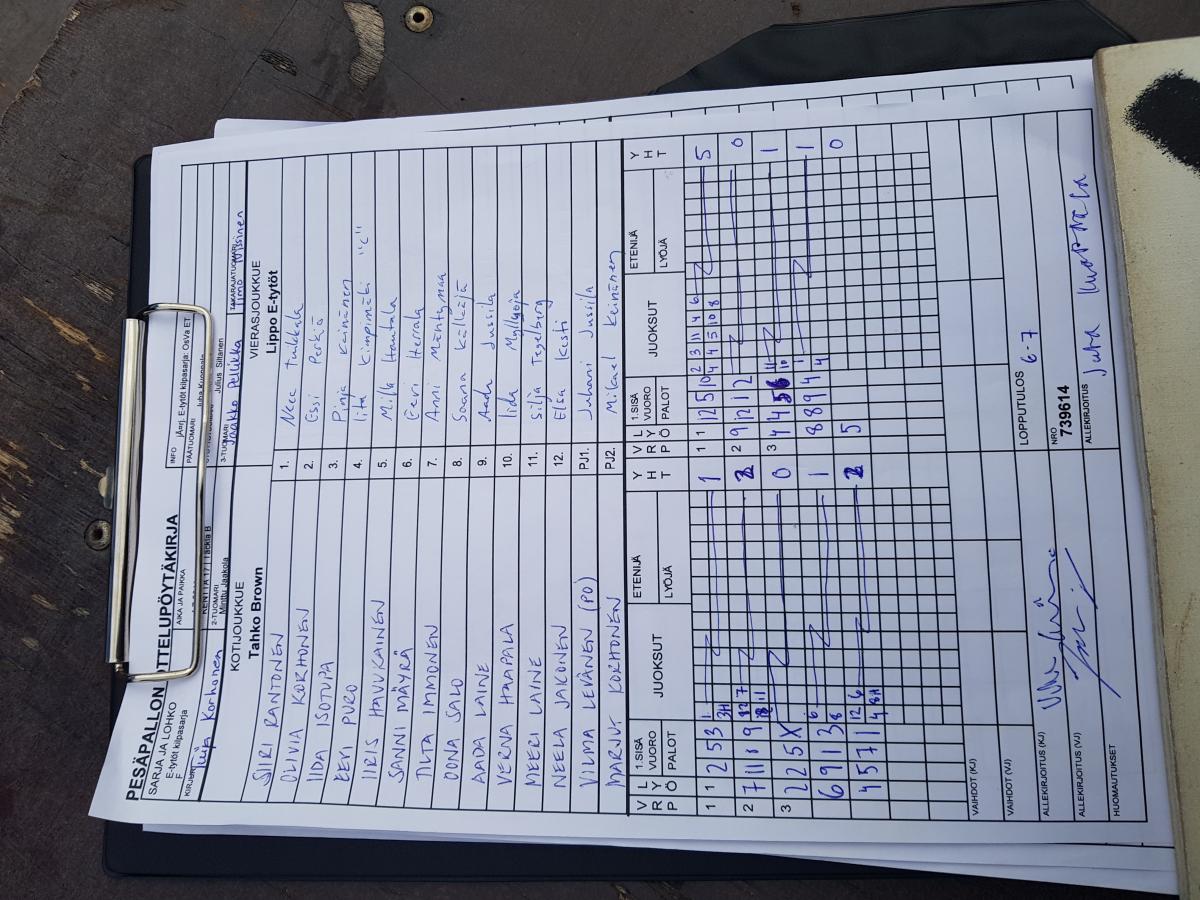 PESÄPALLON OTTELUPÖYTÄKIRJA
SARJA JA LOHKO
E-tytöt kilpasarja
F
AIKA JA PAIKKA
KENTTÄ 17 | Tackla B
INFO
jÄrrj. E-tytöt kilpasarja: OsVa ET
PÄÄTUOMARI
Juha Kuoppala
KIRJURI
Tuija Korhonen
2-TUOMARI
Minttu Jaakola
3-TUOMARI
Jaakko Pellikka
Julius Siltanen
TAKARAJATUOMARI
Timo Nissinen
KOTIJOUKKUE
Tahko Brown
VIERASJOUKKUE
Lippo E-tytöt
SIIRI RANTONEN 1. Neea Tuikkala
OLIVIA KORHONEN 2. Essi Perkiö
IIDA ISOTUPA 3. Pinja Keinänen
EEVI PURO 4. Iita Kimpimäki "C"
IIRIS HAVUKAINEN 5. Milla Hautala
SANNI MÄYRÄ 6. Eevi Herrala
TILTA IMMONEN 7. Anni Mäntymaa
OONA SALO 8. Saana
AADA LAINE 9. Aada Jussila
VERNA HAAPALA 10. Iida Myllyoja
MEERI LAINE 11. Silja Tegelberg
NEELA JAKONEN 12. Elsa Kesti
VILMA LEVÄNEN (PO) PJ1. Juhani Jussila
MARJUT KORHONEN PJ2. Mikael Keinänen
V R P L Y Ö 1.SISÄ VUORO PALOT JUOKSUT ETENIJÄ LYÖJÄ Y H T
V R P L Y Ö 1.SISÄ VUORO PALOT JUOKSUT ETENIJÄ LYÖJÄ Y H T
1 1 2 5 3 1 3H 1
1 1 12 5 10 2 3 11 4 6 4 4 5 10 8 5
2 7 11 1 9 2
2 9 12 1 2 0
3 2 2 5 X 0
3 4 4 5 11 10 1
6 9 1 3 6 8 1
8 8 9 4 1 4 1
4 5 7 1 12 6 4 8H 2
5 0
VAIHDOT (KJ)
VAIHDOT (VJ)
LOPPUTULOS
6-7
ALLEKIRJOITUS (KJ)
NRO
739614
ALLEKIRJOITUS (VJ)
ALLEKIRJOITUS
Juha Kuoppala
HUOMAUTUKSET